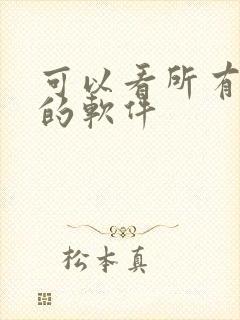 可以看所有
的軟件
松本真